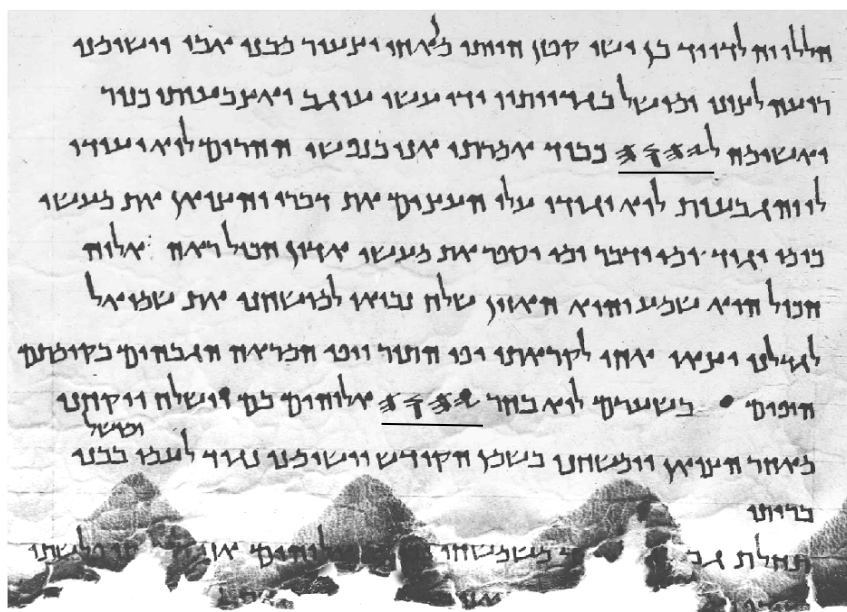 הללויה לדויד בן ישי קטן הייתי מןאחי וצעיר מבני אבי וישימני
רועה לצונו ומושל בגדיותיו ידי עשו עוגב ואצבעותי כנור
ואשימה ל𐤉𐤄𐤅𐤄 כבוד אמרתי אני בנפשי ההרים לוא יעידו
לי והגבעות לוא יגידו עלו העצים את דברי והצואן את מעשי
כי מי יגיד ומי ידבר ומי יספר את מעשי אדון הכול ראה אלוה
הכול הוא שמע והוא האזין שלח נביאו למושחני את שמואל
לגדלני יצאו אחי לקראתו יפי התור ויפי המראה הגבהים בקומתם
היפים בשערם לוא בחר 𐤉𐤄𐤅𐤄 אלוהים בם וישלח ויקחני
ומושל
מאחר הצואן וימשחני בשמן הקודש וישימני נגיד לעמו בבני
בריתו
תחלת גב משמשחו אלוהים פלשתי